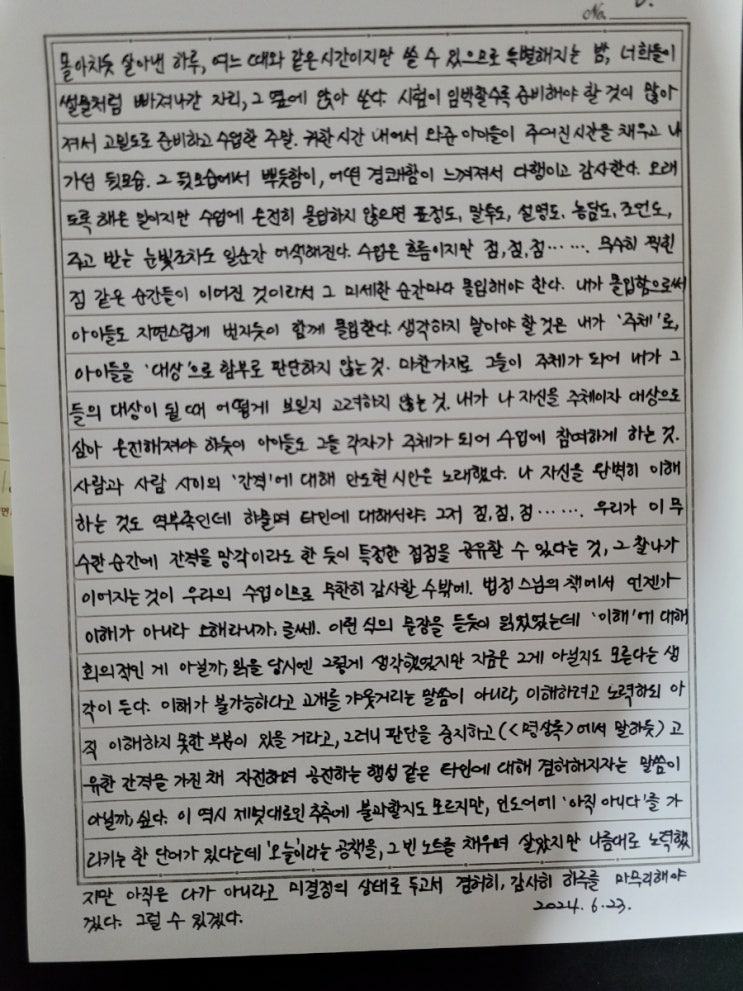 No.
몰아치듯 살아낸 하루, 여느 때와 같은 시간이지만 쓸 수 있으므로 특별해지는 밤, 너희들이
썰물처럼 빠져나간 자리, 그 옆에 앉아 쓴다. 시험이 임박할수록 준비해야 할 것이 많아
져서 고밀도로 준비하고 수업한 주말. 귀한 시간 내어서 와준 아이들이 주어진 시간을 채우고 나
가선 뒷모습. 그 뒷모습에서 뿌듯함이, 어떤 경쾌함이 느껴져서 다행이고 감사한다. 오래
도록 해온 일이지만 수업에 온전히 몰입하지 않으면 표정도, 말투도, 설명도, 농담도, 조언도,
주고 받는 눈빛조차도 일순간 어색해진다. 수업은 흐름이지만 점, 점, 점……. 무수히 찍힌
점 같은 순간들이 이어진 것이라서 그 미세한 순간마다 몰입해야 한다. 내가 몰입함으로써
아이들도 자연스럽게 번지듯이 함께 몰입한다. 생각하지 말아야 할 것은 내가 '주체'로,
아이들을 '대상'으로 함부로 판단하지 않는 것. 마찬가지로 그들이 주체가 되어 내가 그
들의 대상이 될 때 어떻게 보일지 고려하지 않는 것. 내가 나 자신을 주체이자 대상으로
삼아 온전해져야 하듯이 아이들도 그들 각자가 주체가 되어 수업에 참여하게 하는 것.
사람과 사람 사이의 '간격'에 대해 안도현 시인은 노래했다. 나 자신을 완벽히 이해
하는 것도 역부족인데 하물며 타인에 대해서랴. 그저 점, 점, 점……. 우리가 이 무
수한 순간에 간격을 망각이라도 한 듯이 특정한 접점을 공유할 수 있다는 것, 그 찰나가
이어지는 것이 우리의 수업이므로 무한히 감사할 수밖에. 법정 스님의 책에서 언젠가
이해가 아니라 오해라니까, 글쎄. 이런 식의 문장을 듣듯이 읽었었는데 '이해'에 대해
회의적인 게 아닐까, 읽을 당시엔 그렇게 생각했었지만 지금은 그게 아닐지도 모른다는 생
각이 든다. 이해가 불가능하다고 고개를 갸웃거리는 말씀이 아니라, 이해하려고 노력하되 아
직 이해하지 못한 부분이 있을 거라고, 그러니 판단을 중지하고(<명상록>에서 말하듯) 고
유한 간격을 가진 채 자전하며 공전하는 행성 같은 타인에 대해 겸허해지자는 말씀이
아닐까, 싶다. 이 역시 제멋대로인 추측에 불과할지도 모르지만, 인도어에 '아직 아니다'를 가
리키는 한 단어가 있다는데 '오늘'이라는 공책을, 그 빈 노트를 채우며 살았지만 나름대로 노력했
지만 아직은 다가 아니라고 미결정의 상태로 두고서 겸허히, 감사히 하루를 마무리해야
겠다. 그럴 수 있겠다.
2024. 6. 23.